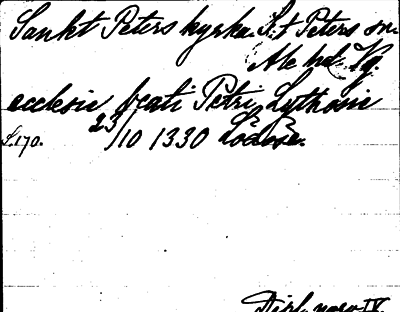 Sankt Peters kyrka S:t Peters sn.
Ale hd. Vg.
ecclesie beati Petri Lythosie
23/10 1330 Lödöse.
S.170.
Dipl. norv. IV.